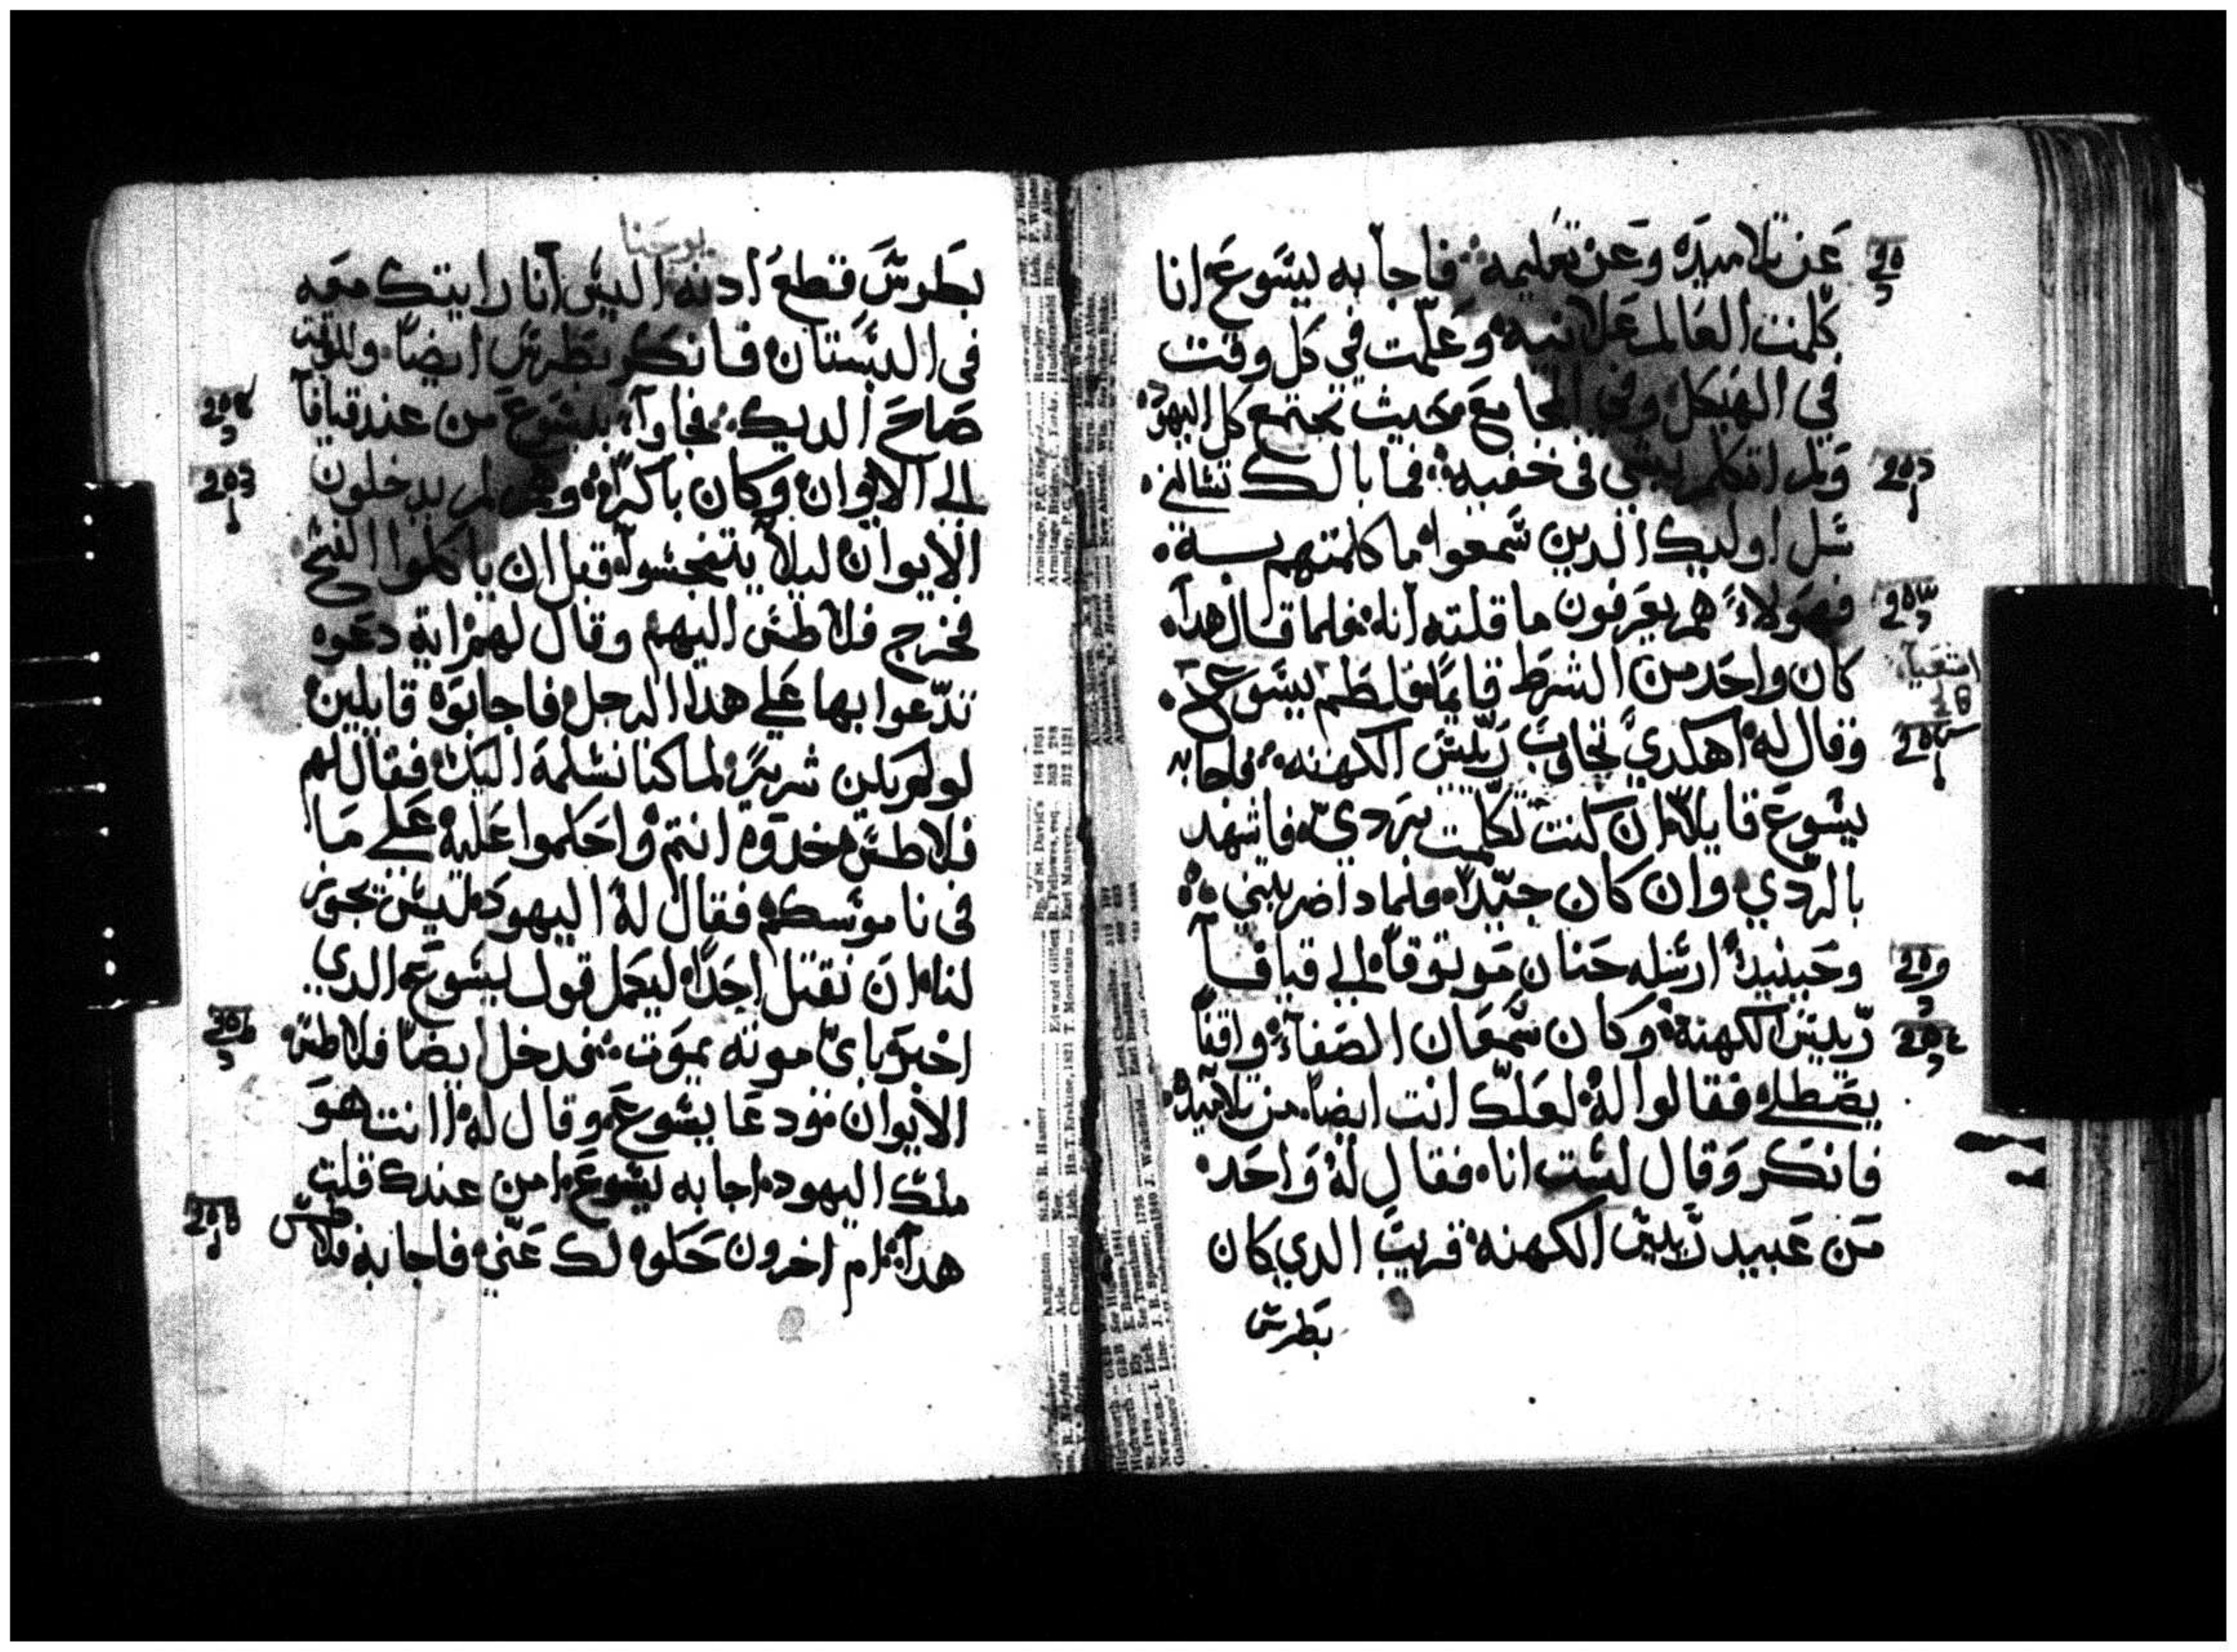 عن تلاميده وعن تعليمه فاجابه ليسوع انا
كلمت العالم علانيه وعلمت في كل وقت
في الهيكل وفي المجامع حيث تجتمع كل اليهود
ولم اتكلم بشي في خفيه فما بالك تسالني
سل اوليك الدين سمعوا ما كلمتهم به
فهولاء هم يعرفون ما قلته انا فلما قال هدا
كان واحد من الشرط قايما فلطم يسوع
وقال له اهكدي تجاوب ريس الكهنه فاجابه
يسوع قايلا ان كنت تكلمت بردي فاشهد
بالردي وان كان جيدا فلماد اضربتني
وحينيد ارسله حنان موتوقا الي قيافا
رييس الكهنة وكان سمعان الصفا واقفا
يصطلي فقالوا له لعلك انت ايضا من تلاميده
فانكر وقال لست انا فقال له واحد
من عبيد رييس الكهنه قريب الدي كان
بطرس
يوحنا
بطرس قطع ادنه اليس انا رايتك معه
في البستان فانكر بطرس ايضا وللوقت
صاح الديك فجاوا بيسوع من عند قيافا
الي الايوان وكان باكرا وهم لم يدخلون
الايوان ليلا يتنجسوا قبل ان ياكلوا الفسح
فخرج فلاطس اليهم وقال لهم اية دعوه
تدعوا بها علي هدا الرجل فاجابوه قايلين
لو لم يكن شرير لما كنا نسلمه اليك فقال لهم
فلاطس خدوه انتم واحكموا عليه علي ما
في ناموسكم فقال له اليهود ليس تجوز
لنا ان نقتل احدا ليكمل قول يسوع الدي
اخبر باي موته يموت فدخل ايضا فلاطس
الايوان ودعا يسوع وقال له اانت هو
ملك اليهود اجابه يسوع امن عندك قلت
هدا ام اخرون حكوه لك عني فاجابه فلاطس